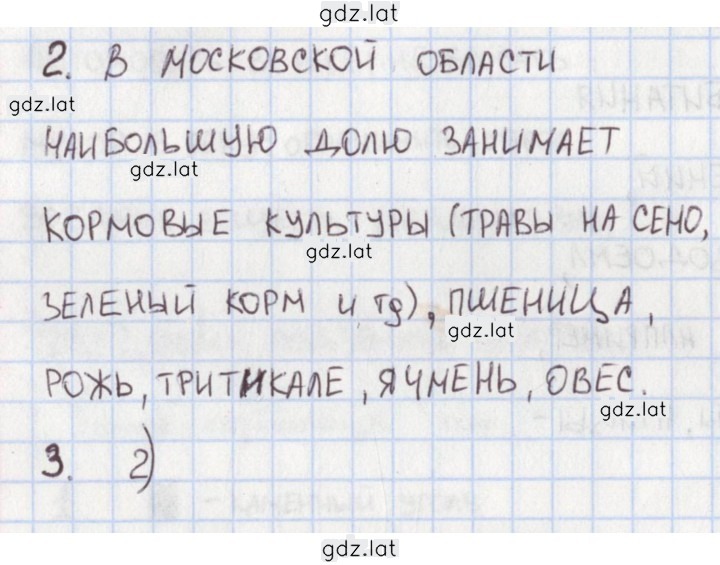 gdz.lat
2. В МОСКОВСКОЙ ОБЛАСТИ
gdz.lat
НАИБОЛЬШУЮ ДОЛЮ ЗАНИМАЕТ
gdz.lat
КОРМОВЫЕ КУЛЬТУРЫ (ТРАВЫ НА СЕНО,
gdz.lat
ЗЕЛЕНЫЙ КОРМ и тд), ПШЕНИЦА,
gdz.lat
РОЖЬ, ТРИТИКАЛЕ, ЯЧМЕНЬ, ОВЕС.
gdz.lat
3. 2)
gdz.lat